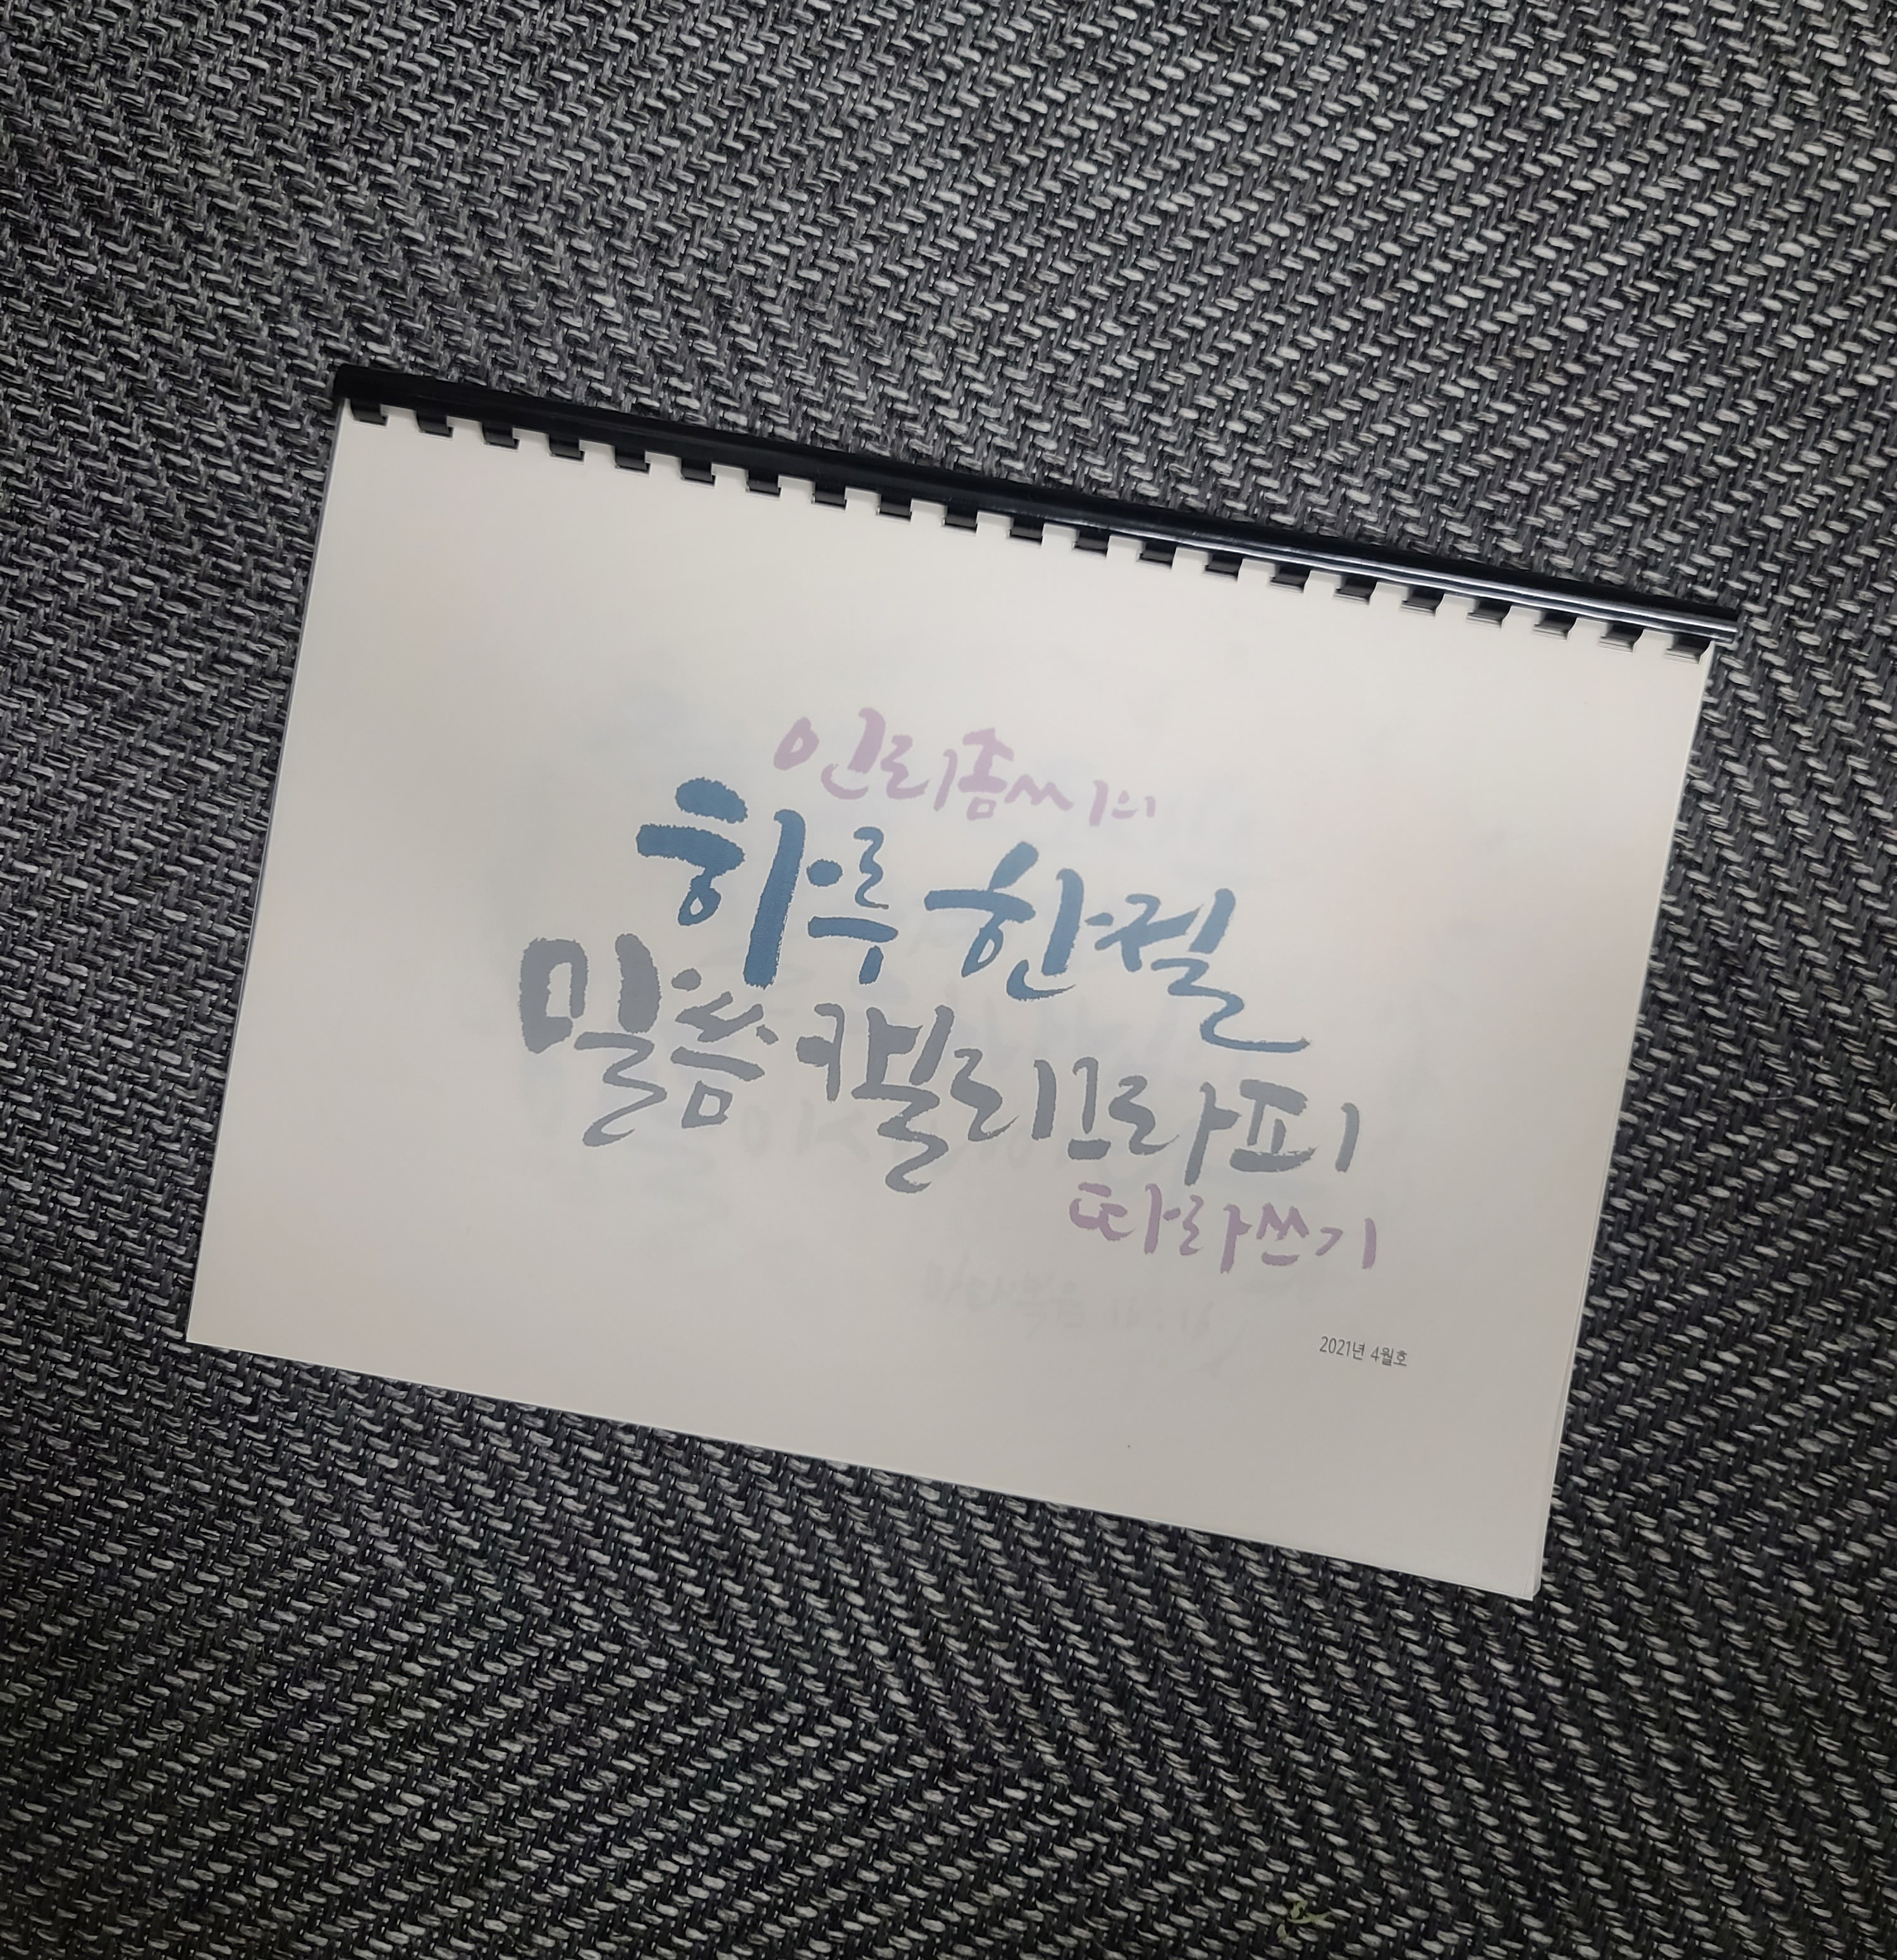 인리좀씨의
하루 한절
말씀 캘리그라피
따라쓰기
2021년 4월호